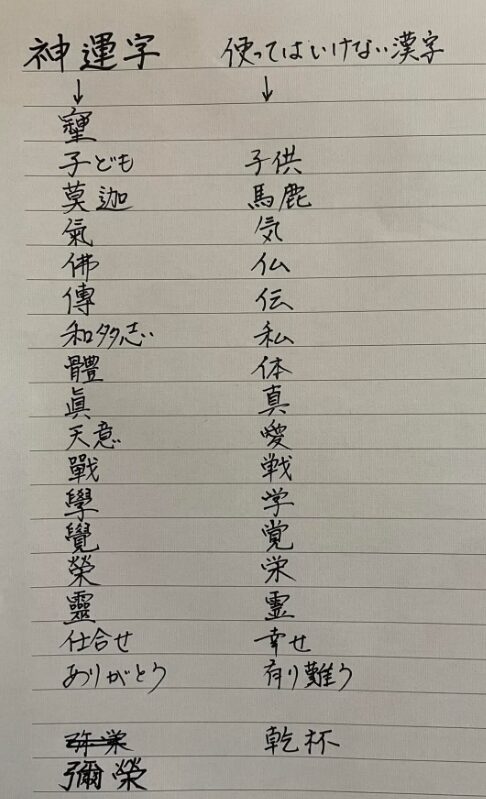 神運字 使ってはいけない漢字
↓ ↓
子ども 子供
莫迦 馬鹿
氣 気
佛 仏
傳 伝
和多志 私
體 体
眞 真
天意
戰 戦
學 学
覺 覚
榮 栄
靈 霊
仕合せ 幸せ
ありがとう 有り難う
弥栄 乾杯
彌榮